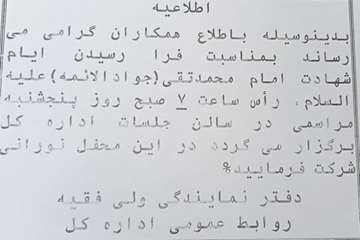 اطلاعیه
بدینوسیله باطلاع همکاران گرامی می
رساند بمناسبت فرا رسیدن ایام
شهادت امام محمدتقی(جوادالائمه)علیه
السلام، رأس ساعت ۷ صبح روز پنجشنبه
مراسمی در سالن جلسات اداره کل
برگزار می گردد در این محفل نورانی
شرکت فرمایید%
دفتر نمایندگی ولی فقیه
روابط عمومی اداره کل